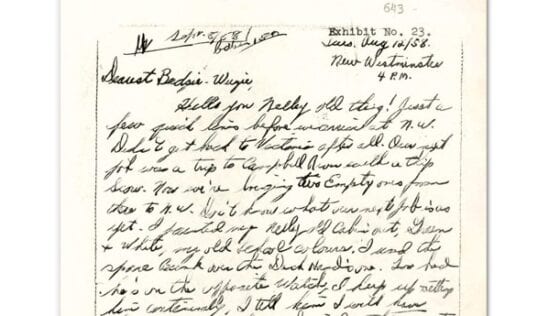 643
Sept. 5/58
Exhibit No. 23.
Tues. Aug 12/58.
New Westminster
4 P.M.
Dearest
Hello you Nelly old thing! Just a
few quick lines before we arrive at N.W.
Didn't get back to Victoria after all. Our next
job was a trip to Campbell River with a chip
Scow. Now we're bringing two Empty ones from
there to N.W. Don't know what our next job is as
yet. I painted my Nelly old Cabin out, Green
& White, my old school colours. I used the
spare Bunk over the Deck Hand's one. Too bad
he's on the opposite watch, I keep up
him continually, I tell him I would have